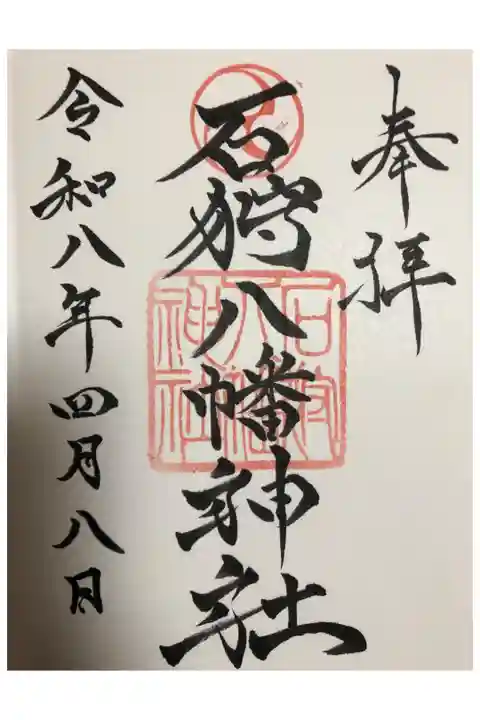 奉拝
石狩八幡神社
石狩八幡神社
令和八年四月八日